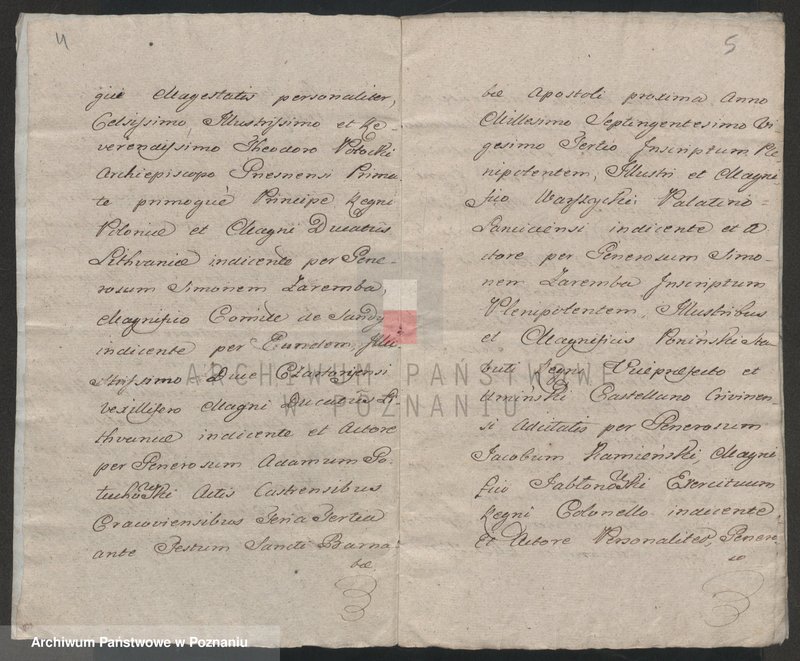 4
giæ Magestatis personaliter,
Celsissimo, Illustrissimo et Re-
verendissimo Theodoro Potocki
Archiepiscopo Gnesnensi Prima-
te primoque Principe Regni
Poloniæ et Magni Ducatus
Lithvaniæ indicente per Gene-
rosum Simonem Zaremba,
Magnifico Comite de Tandy
indicente per Eundem, Illu-
strissimo Duce Czartoryensi
vexillifero Magni Ducatus Li-
thvaniæ indicente et Actore
per Generosum Adamum Po-
tuchowski Actis Castrensibus
Cracoviensibus Feria Tertia
ante Festum Sancti Barna-
bæ
5
bæ Apostoli proxima Anno
Millesimo Septingentesimo Vi-
gesimo Tertio Inscriptum Ple-
nipotentem, Illustri et Magni-
fico Warszycki Palatino
Lanciciensi indicente et A-
ctore per Generosum Simo-
nem Zaremba Inscriptum
Plenipotentem, Illustribus
et Magnificis Poninski Sta-
buli Regni Vicepræfecto et
Uminski Castellano Crivinen-
si adcitatis per Generosum
Jacobum Kamieński, Magni-
fico Jabłonowski Exercituum
Regni Colonello indicente
et Actore Personaliter, Genero-
so
ARCHIWUM PAŃSTWOWE
W POZNANIU
Archiwum Państwowe w Poznaniu